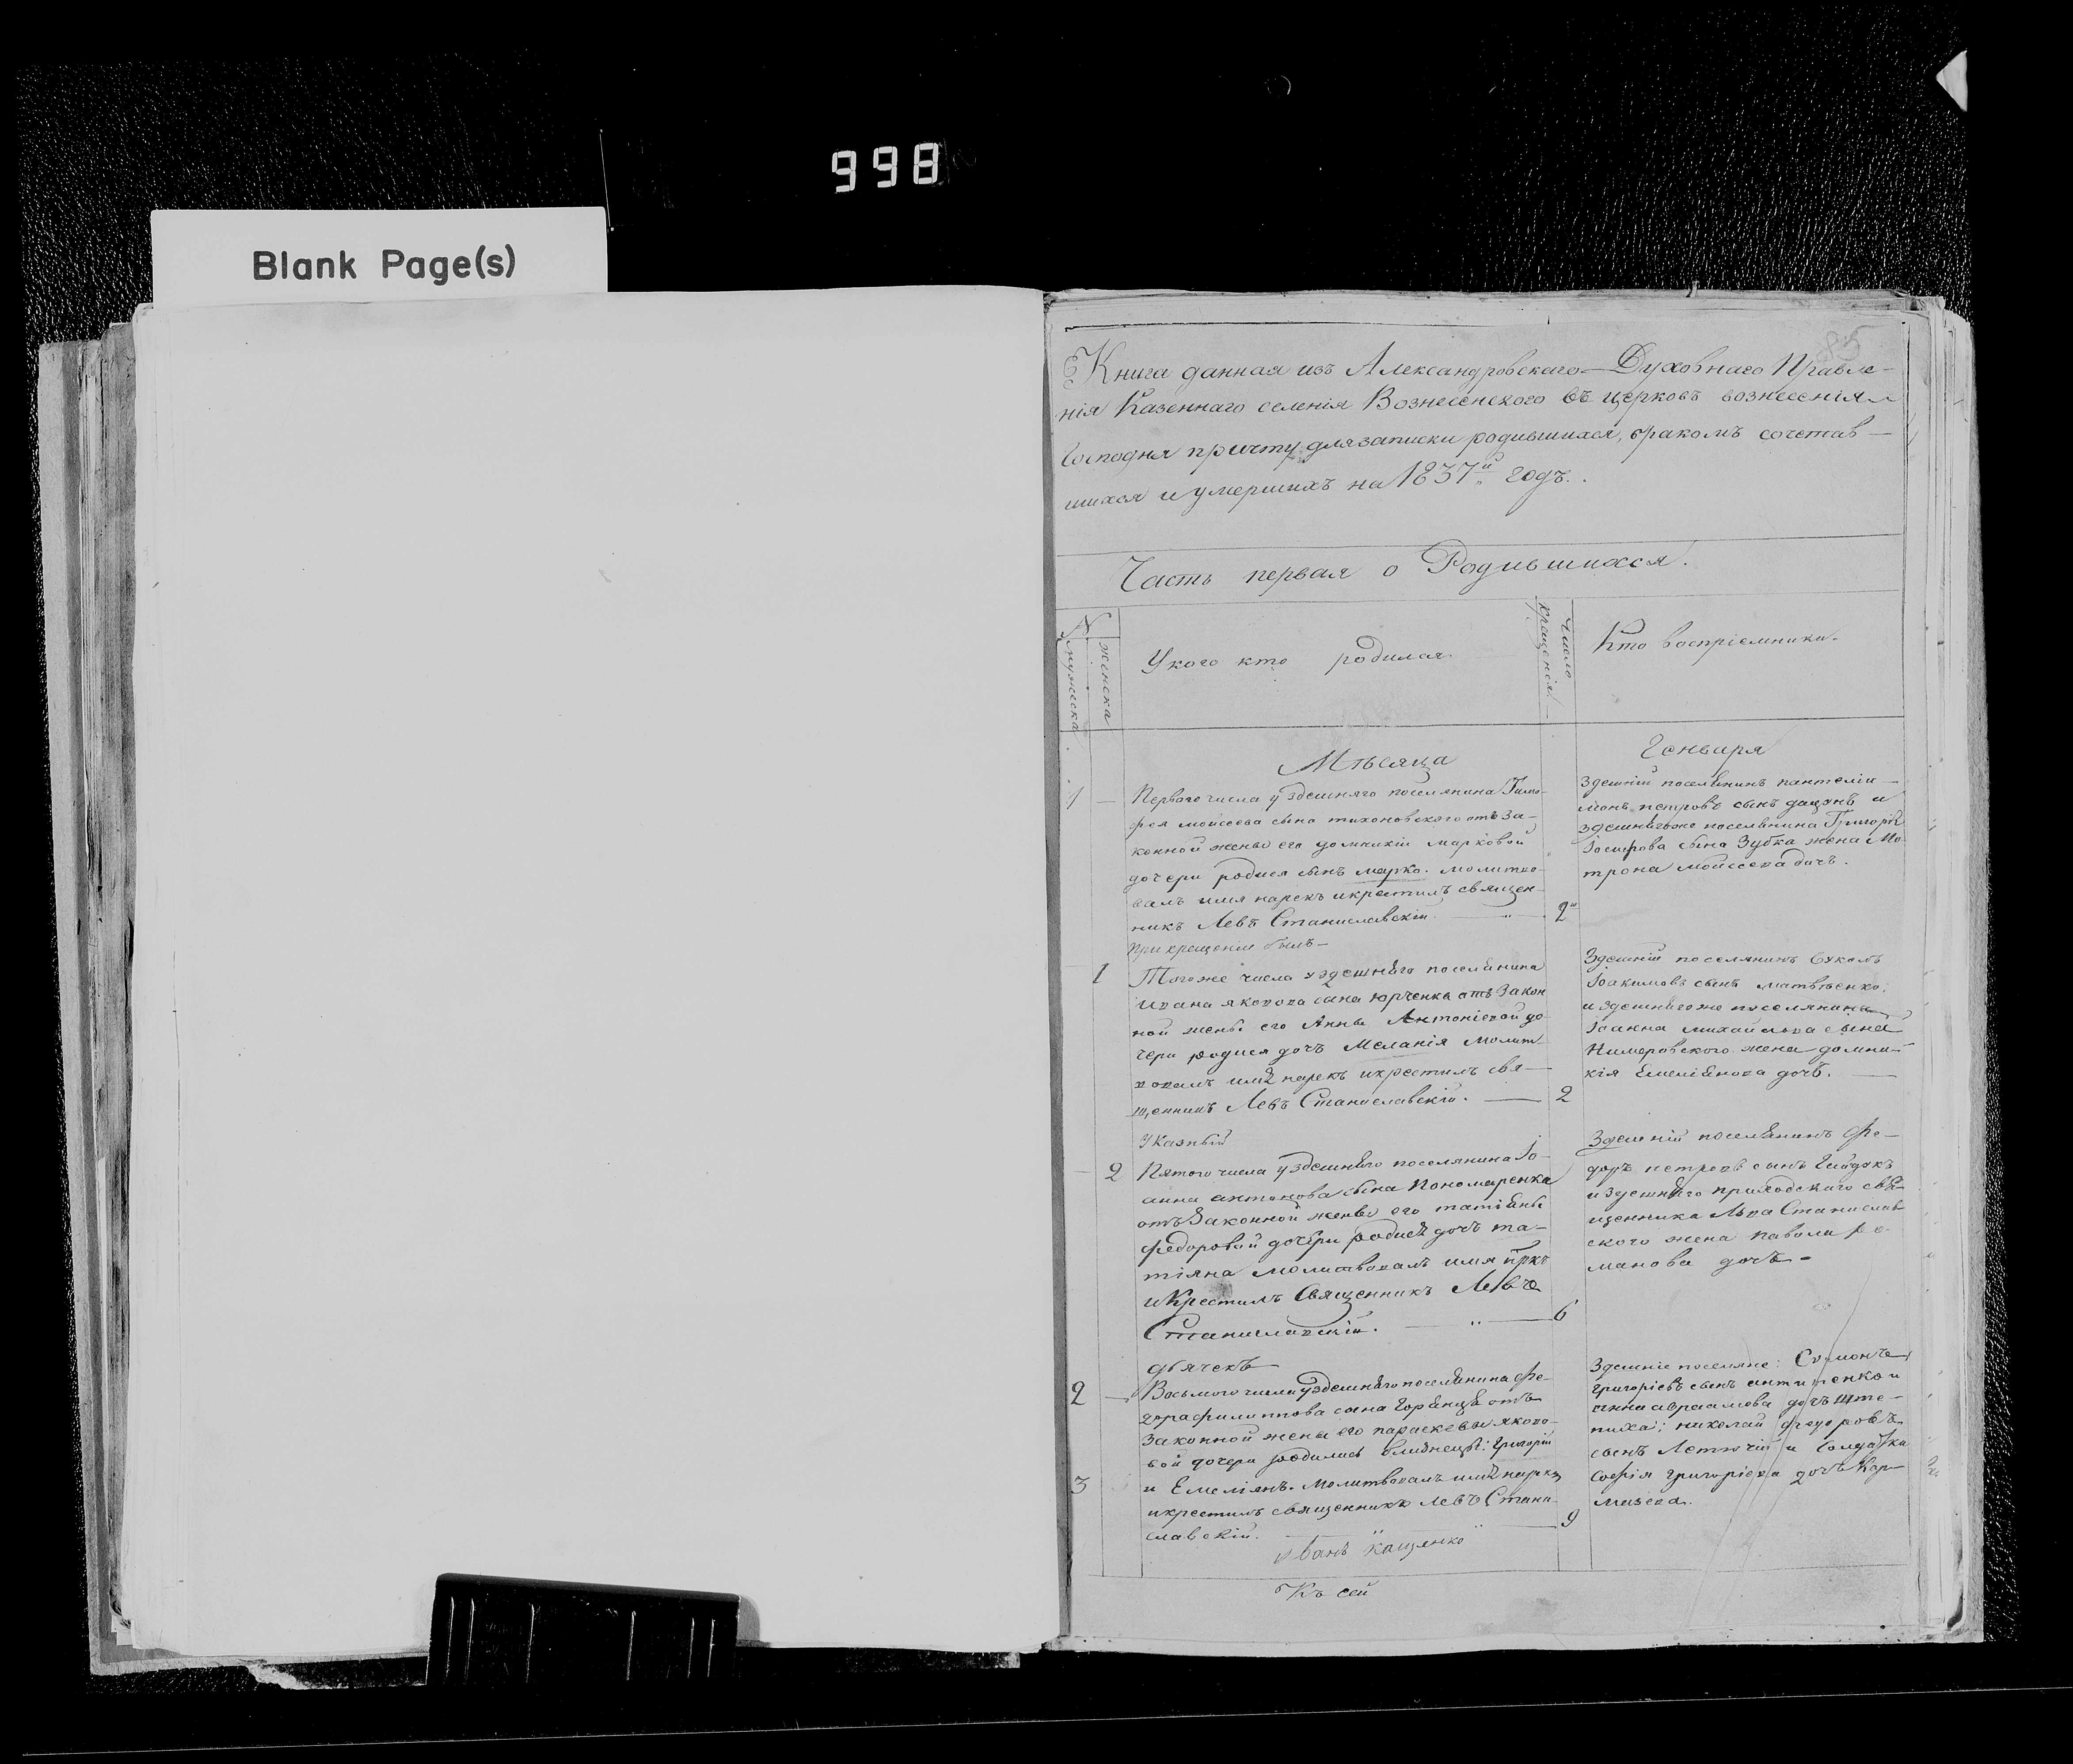 998
Blank Page(s)
85
Книга данная изъ Александровскаго Духовнаго Правле-
нія Казеннаго селенія Вознесенского въ церковъ вознесенія
Господня причту для записки родившихся, бракомъ сочетав-
шихся и умершихъ на 1837й годъ.
Часть первая о Родившихся.
№
мужеска
женска
У кого кто родился
Число крещенія
Кто воспріемники.
Мѣсяца
Генваря
1
Первого числа у здешняго поселянина Тимо-
фея мойсеева сына тихоновского отъ за-
конной жены его домникіи марковой
дочери родися сынъ марко. молитво-
валъ имя нарекъ и крестилъ священ-
никъ Левъ Станиславскій
2
При крещеніи былъ
здешній поселянинъ пантеліи-
монъ петровъ сынъ дацонъ и
здешнягоже поселянина Григорія
Іосифова сына Зубка жена Мо-
трона мойсеева дочь.
1
Тогоже числа у здешняго поселянина
Ивана яковова сына юрченка отъ закон
ной жены его Анны Антоніевой до
чери родися дочъ Меланія Молит
вовалъ имя нарекъ и крестилъ свя-
щенникъ Левъ Станиславскій.
2
Указный
Здешній поселянинъ
Іоакимовъ сынъ матвѣенко,
и здешнягоже поселянина
Іоанна михайлова сына
Нимеровского жена домни-
кія Емеліянова дочъ.
2
Пятого числа у здешняго поселянина Іо-
анна антонова сына Пономаренка
отъ Законной жены его татіяны
федоровой дочери родися дочъ та-
тіяна молитвовалъ имя нркъ
и Крестилъ Священникъ Левъ
Станиславскій.
6
дьячекъ
Здешній поселянинъ Фе-
доръ петровъ сынъ Гайдукъ
и здешняго приходского свя-
щенника Льва Станислав-
ского жена павола ро-
манова дочъ
2
Восьмого числа у здешняго поселянина Фе-
дора филиппова сына Горянца отъ
Законной жены его параскевы яково-
вой дочери родились близнецы: Григорій
3
и Емеліянъ. Молитвовалъ имя нарекъ
и крестилъ священникъ Левъ Стани-
славскій.
9
Иванъ Кащенко
Здешніе поселяне: Симонъ
Григоріевъ сынъ антипенко и
анна авраамова дочъ
николай федоровъ
сынъ Летючій и Солдатка
Софія григоріева дочъ Кар-
мазева.
Къ сей